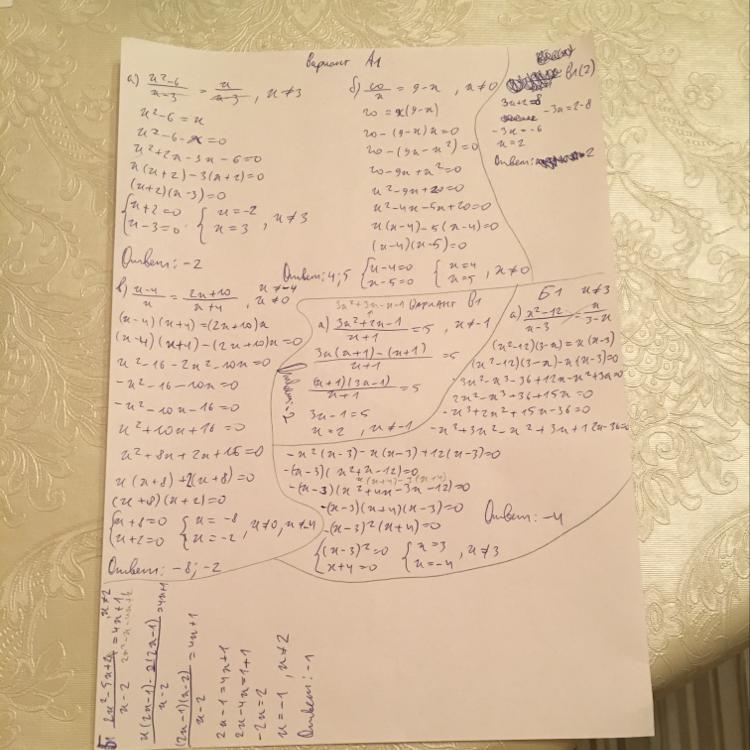 Вариант А1
а) x²-6/x-3 = x/x-3, x≠3
x²-6=x
x²-6-x=0
x²+2x-3x-6=0
x(x+2)-3(x+2)=0
(x+2)(x-3)=0
{x+2=0 {x=-2
{x-3=0 {x=3, x≠3
Ответ: -2
б) 20/x = 9-x, x≠0
20=x(9-x)
20-(9-x)x=0
20-(9x-x²)=0
20-9x+x²=0
x²-9x+20=0
x²-4x-5x+20=0
x(x-4)-5(x-4)=0
(x-4)(x-5)=0
{x-4=0 {x=4
{x-5=0 {x=5, x≠0
Ответ: 4;5
в) x-4/x = 2x+10/x+4, x≠-4, x≠0
(x-4)(x+4)=(2x+10)x
(x-4)(x+4)-(2x+10)x=0
x²-16-2x²-10x=0
-x²-16-10x=0
-x²-10x-16=0
x²+10x+16=0
x²+8x+2x+16=0
x(x+8)+2(x+8)=0
(x+8)(x+2)=0
{x+8=0 {x=-8
{x+2=0 {x=-2, x≠0, x≠-4
Ответ: -8;-2
В1(2)
3x+2=8
-3x=2-8
-3x=-6
x=2
Ответ: 2
Вариант В1
3x²+3x-x-1
а) 3x²+2x-1/x+1 = 5, x≠-1
3x(x+1)-(x+1)/x+1 = 5
(x+1)(3x-1)/x+1 = 5
3x-1=5
x=2, x≠-1
Ответ: 2
Б1
а) x²-12/x-3 = x/3-x, x≠3
(x²-12)(3-x)=x(x-3)
(x²-12)(3-x)-x(x-3)=0
3x²-x³-36+12x-x²+3x=0
2x²-x³-36+15x=0
-x³+2x²+15x-36=0
-x³+3x²-x²+3x+12x-36=0
-x²(x-3)-x(x-3)+12(x-3)=0
-(x-3)(x²+x-12)=0
x(x+4)-3(x+4)
-(x-3)(x²+4x-3x-12)=0
-(x-3)(x+4)(x-3)=0
-(x-3)²(x+4)=0
{(x-3)²=0 {x=3
{x+4=0 {x=-4, x≠3
Ответ: -4
x-2 = 4x+1, x≠2
x(2x-1)-2(2x-1)/x-2 = 4x+1
(2x-1)(x-2)/x-2 = 4x+1
2x-1=4x+1
2x-4x=1+1
-2x=2
x=-1, x≠2
Ответ: -1